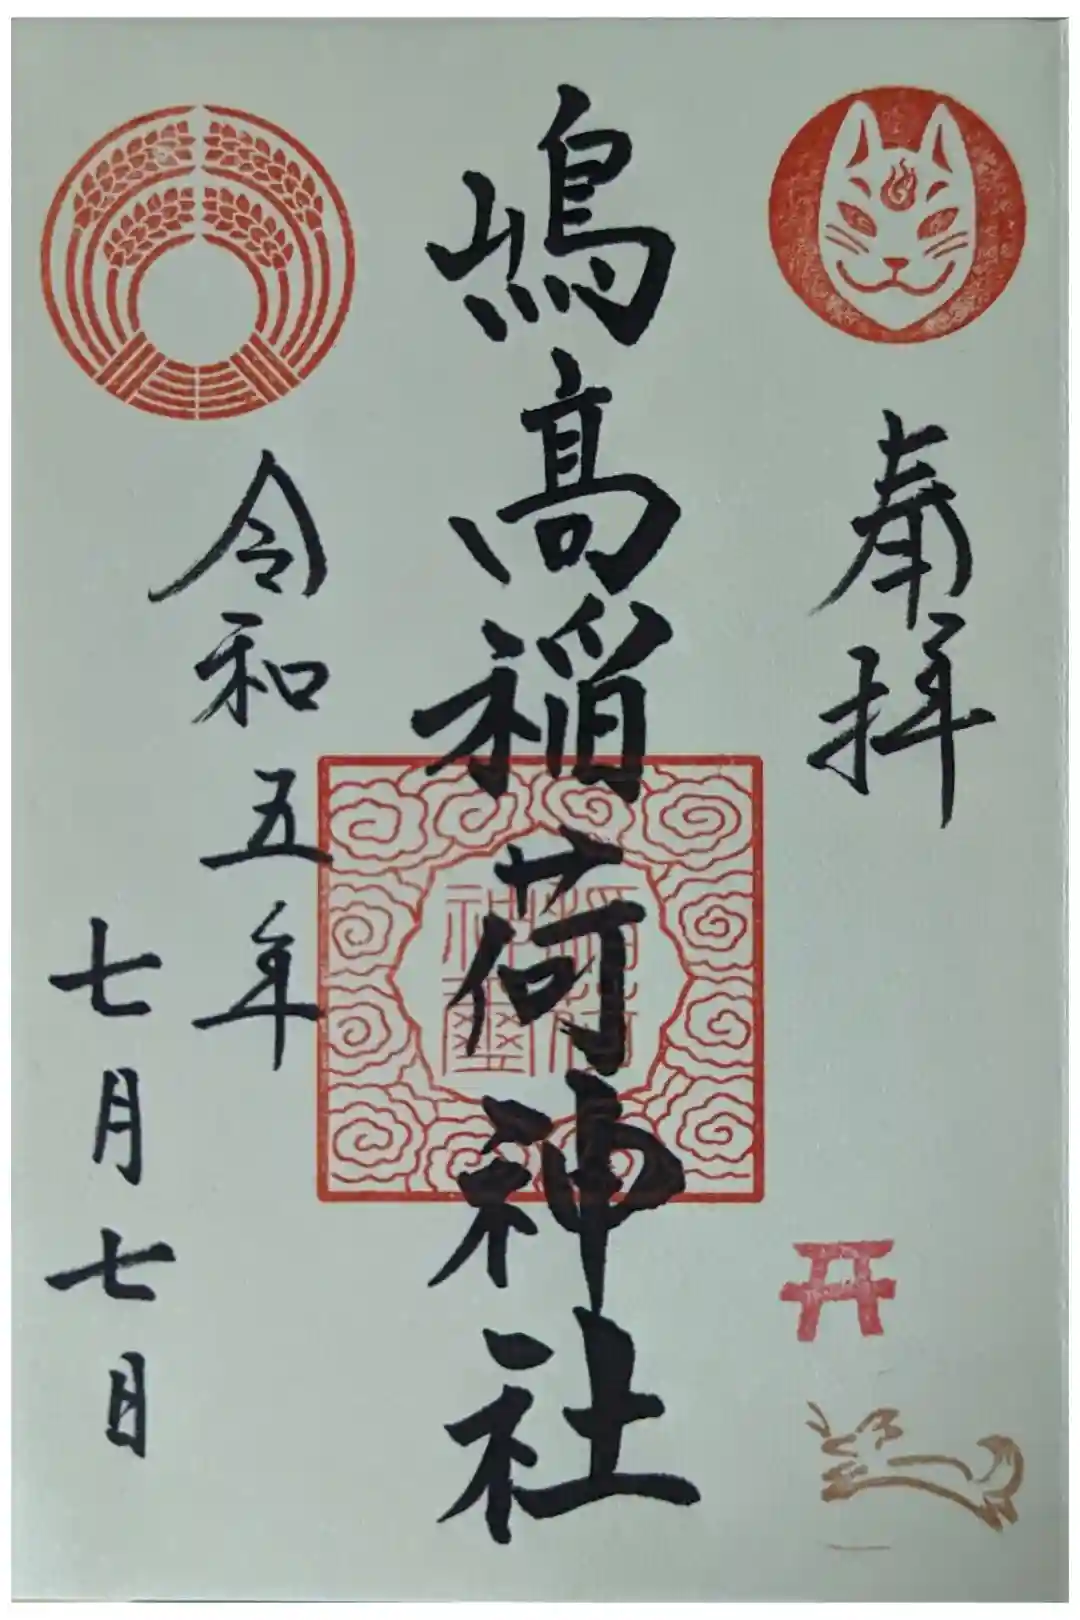 奉拝
嶋髙稲荷神社
稲荷神璽
令和五年
七月七日